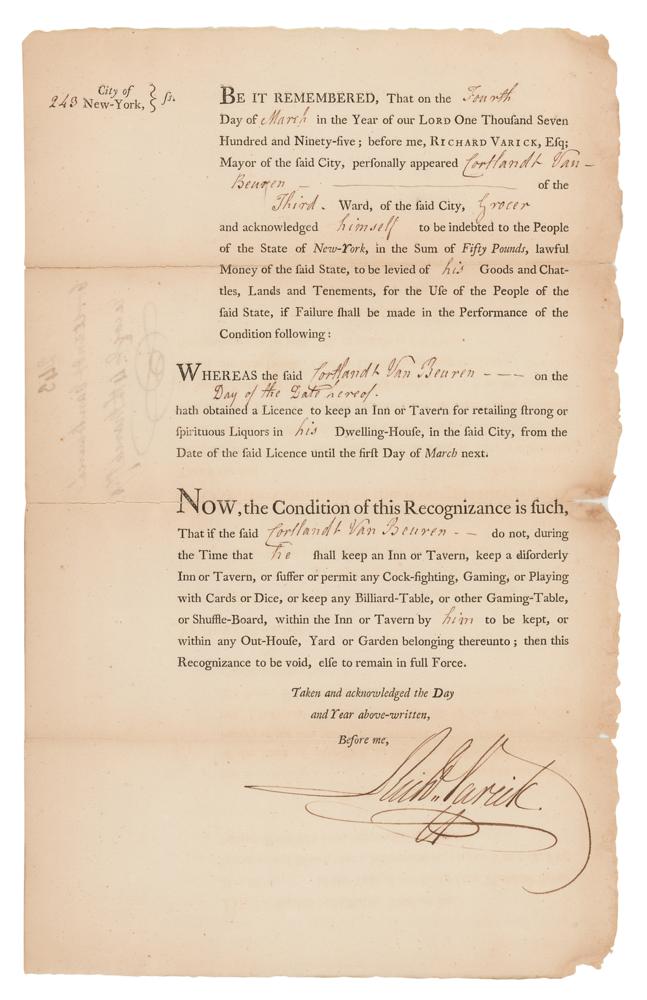 City of
243 New-York, } ſs.
BE IT REMEMBERED, That on the Fourth
Day of March in the Year of our LORD One Thouſand Seven
Hundred and Ninety-five ; before me, RICHARD VARICK, Eſq;
Mayor of the ſaid City, perſonally appeared Cortlandt Van –
Beuren – —— of the
Third . Ward, of the ſaid City, Grocer
and acknowledged himself to be indebted to the People
of the State of New-York, in the Sum of Fifty Pounds, lawful
Money of the ſaid State, to be levied of his Goods and Chat-
tles, Lands and Tenements, for the Uſe of the People of the
ſaid State, if Failure ſhall be made in the Performance of the
Condition following :
WHEREAS the ſaid Cortlandt Van Beuren - – — on the
Day of the Date hereof.
hath obtained a Licence to keep an Inn or Tavern for retailing ſtrong or
ſpirituous Liquors in his Dwelling-Houſe, in the ſaid City, from the
Date of the ſaid Licence until the firſt Day of March next.
NOW, the Condition of this Recognizance is ſuch,
That if the ſaid Cortlandt Van Beuren - – do not, during
the Time that he ſhall keep an Inn or Tavern, keep a diſorderly
Inn or Tavern, or ſuffer or permit any Cock-fighting, Gaming, or Playing
with Cards or Dice, or keep any Billiard-Table, or other Gaming-Table,
or Shuffle-Board, within the Inn or Tavern by him to be kept, or
within any Out-Houſe, Yard or Garden belonging thereunto ; then this
Recognizance to be void, elſe to remain in full Force.
Taken and acknowledged the Day
and Year above-written,
Before me,
Richd. Varick.